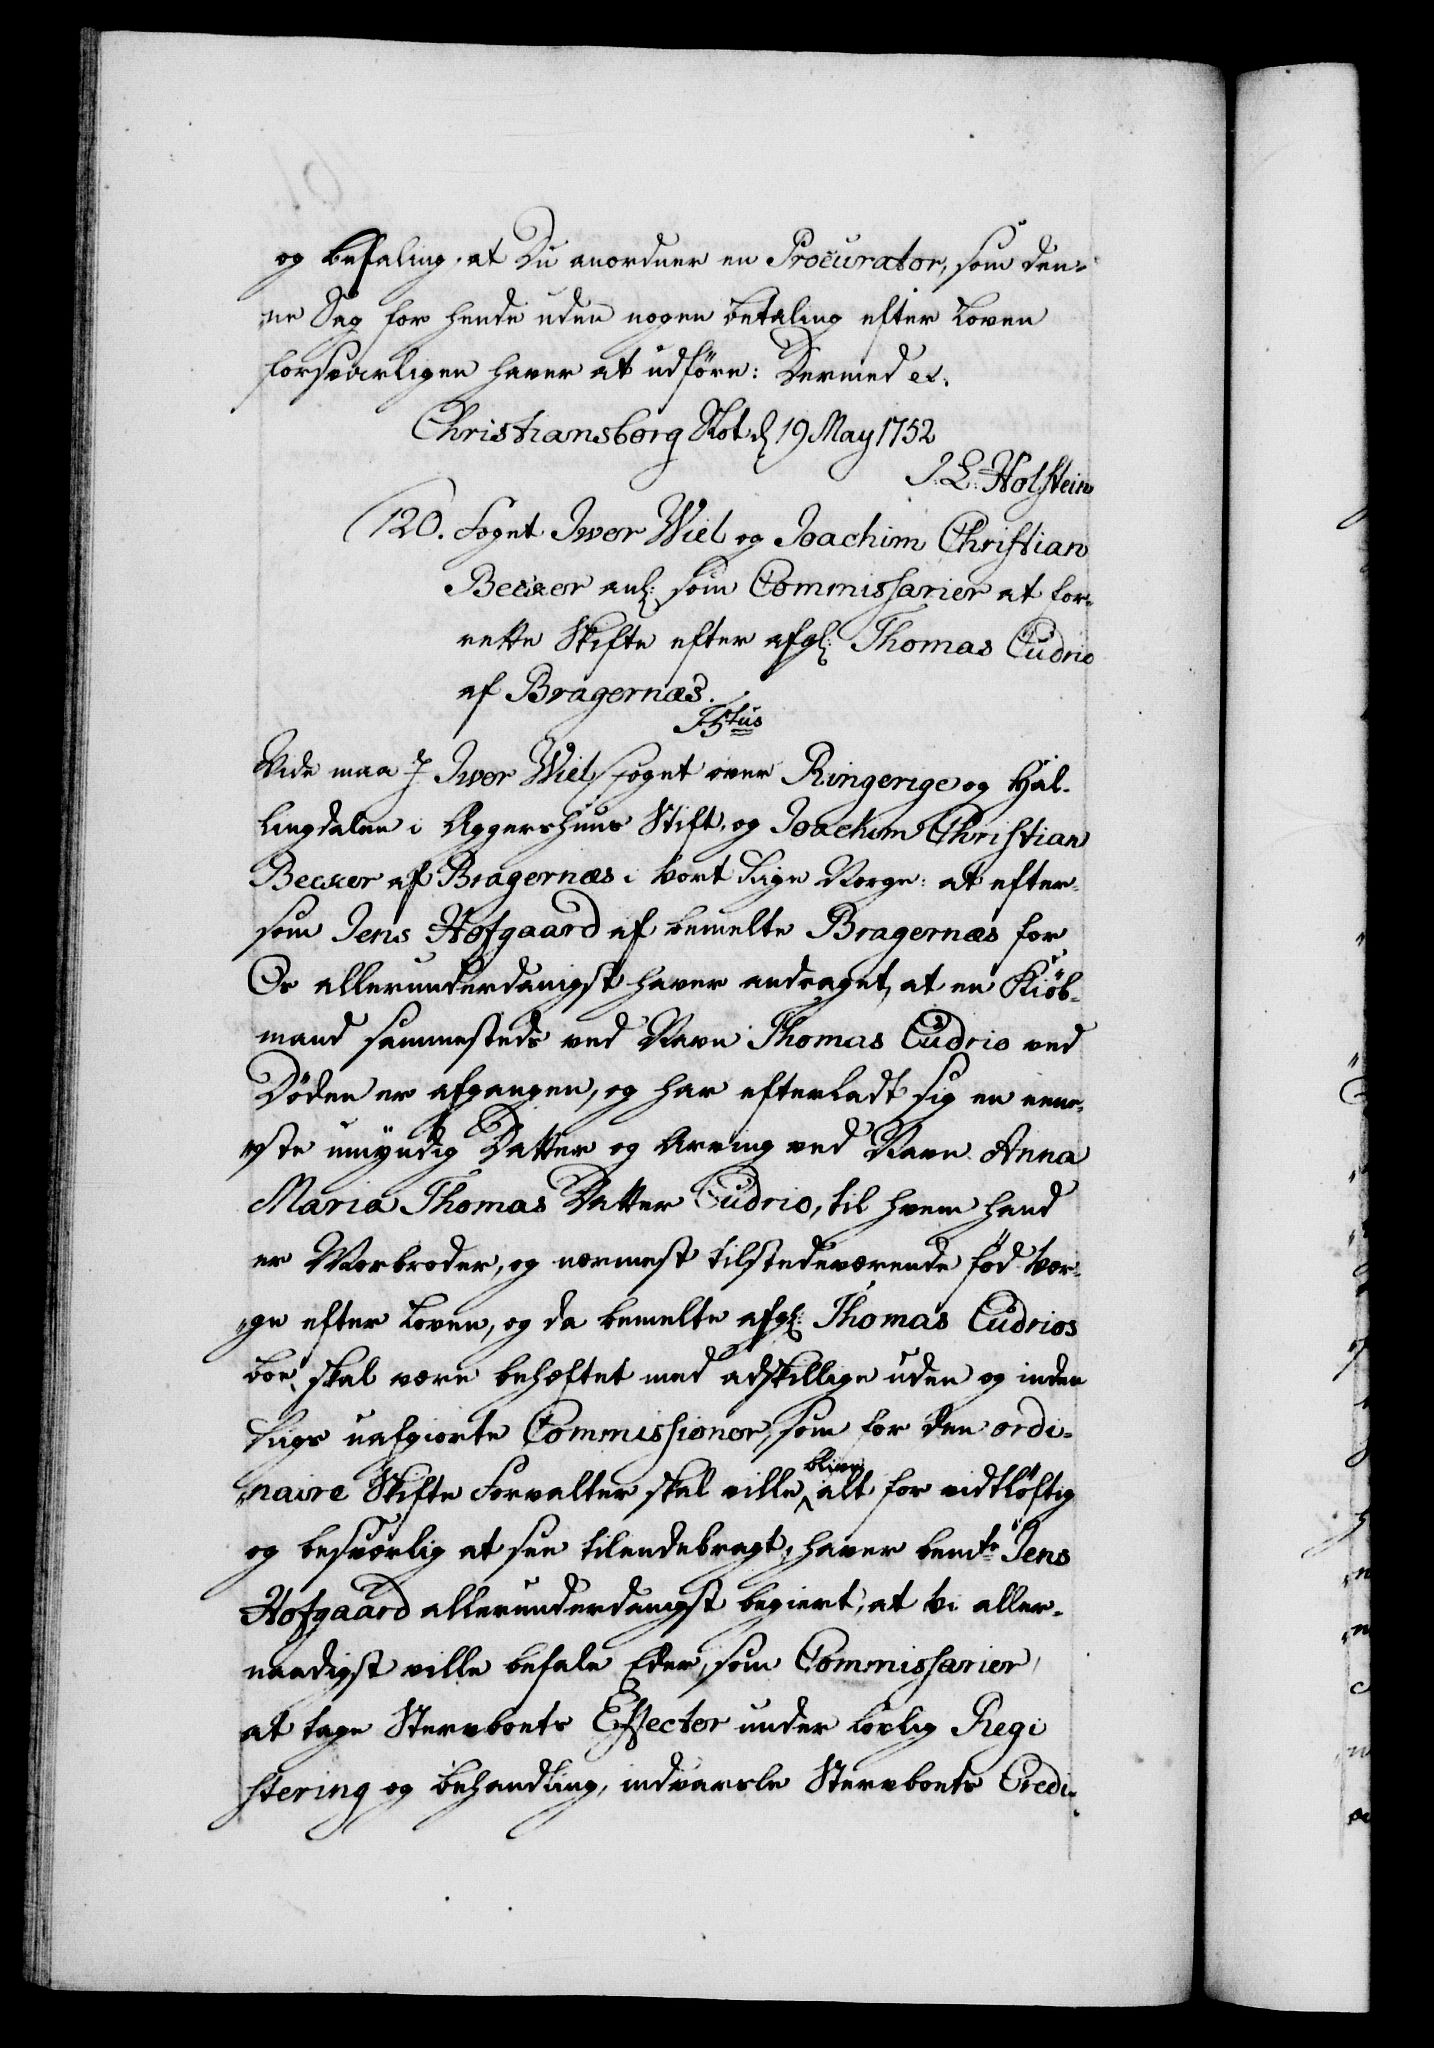 og befaling, at Du anordner en Procurator, som den-
ne Sag for hende uden nogen betaling efter Loven
forsvarligen haver at udføre: Dermed etc.
Christiansborg Slot d 19 May 1752
J. L. Holstein
120. Foget Iver Wiel og Joachim Christian
Becker anl: som Commissarier at for-
rette Skifte efter afgl: Thomas Cudrio
af Bragernæs.
F 5tus
Vide maa I Iver Wiel foget over Ringerige og Hal-
lingdalen i Aggershuus Stift, og Joachim Christian
Becker af Bragernæs i vort Rige Norge: at efter-
som Jens Hofgaard af bemelte Bragernæs for
Os allerunderdanigst haver andraget, at en Kiøb-
mand sammesteds ved Navn Thomas Cudrio ved
Døden er afgangen, og har efterladt sig en enne-
ste umyndig Datter og Arving ved Navn Anna
Maria Thomas Datter Cudrio, til hvem hand
er Morbroder, og nærmest tilstedeværende fød Vær-
ge efter Loven, og da bemelte afgl: Thomas Cudrios
boe skal være behæftet med adskillige uden og inden
Riigs uafgiorte Commissioner, som for den ordi-
naire Skifte Forvalter skal ville blive alt for vidtløftig
og besværlig at see tilendebragt, haver bemte Jens
Hofgaard allerunderdanigst begiert, at vi aller-
naadigst ville befale Eder, som Commissarier,
at tage Stervboets Effecter under lovlig Regi
stering og behandling, indvarsle Stervboets Credi-